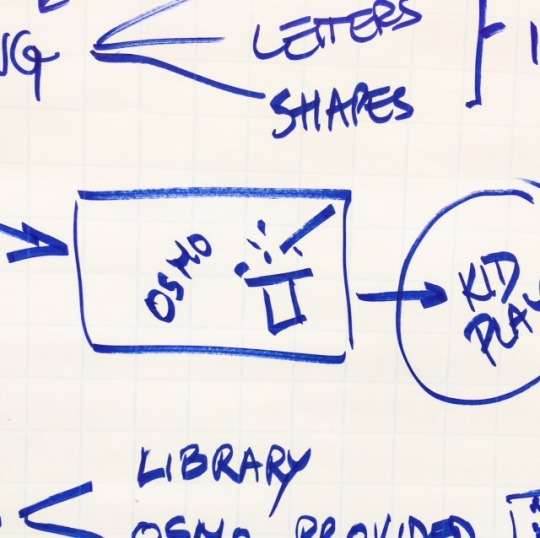 LETTERS
SHAPES
OSMO
KID
LIBRARY
OSMO PROVIDED